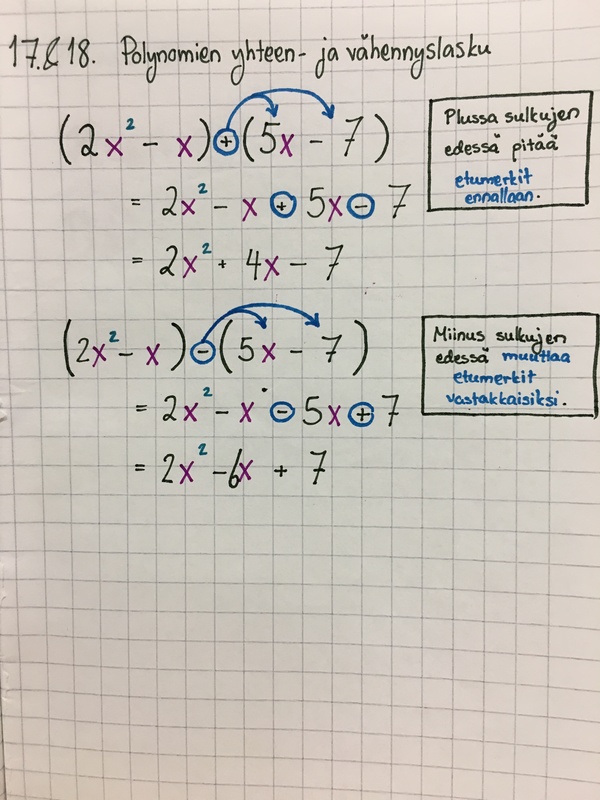 17.&18. Polynomien yhteen- ja vähennyslasku
(2x² - x) + (5x - 7)
= 2x² - x + 5x - 7
= 2x² + 4x - 7
Plussa sulkujen
edessä pitää
etumerkit
ennallaan.
(2x² - x) - (5x - 7)
= 2x² - x - 5x + 7
= 2x² - 6x + 7
Miinus sulkujen
edessä muuttaa
etumerkit
vastakkaisiksi.